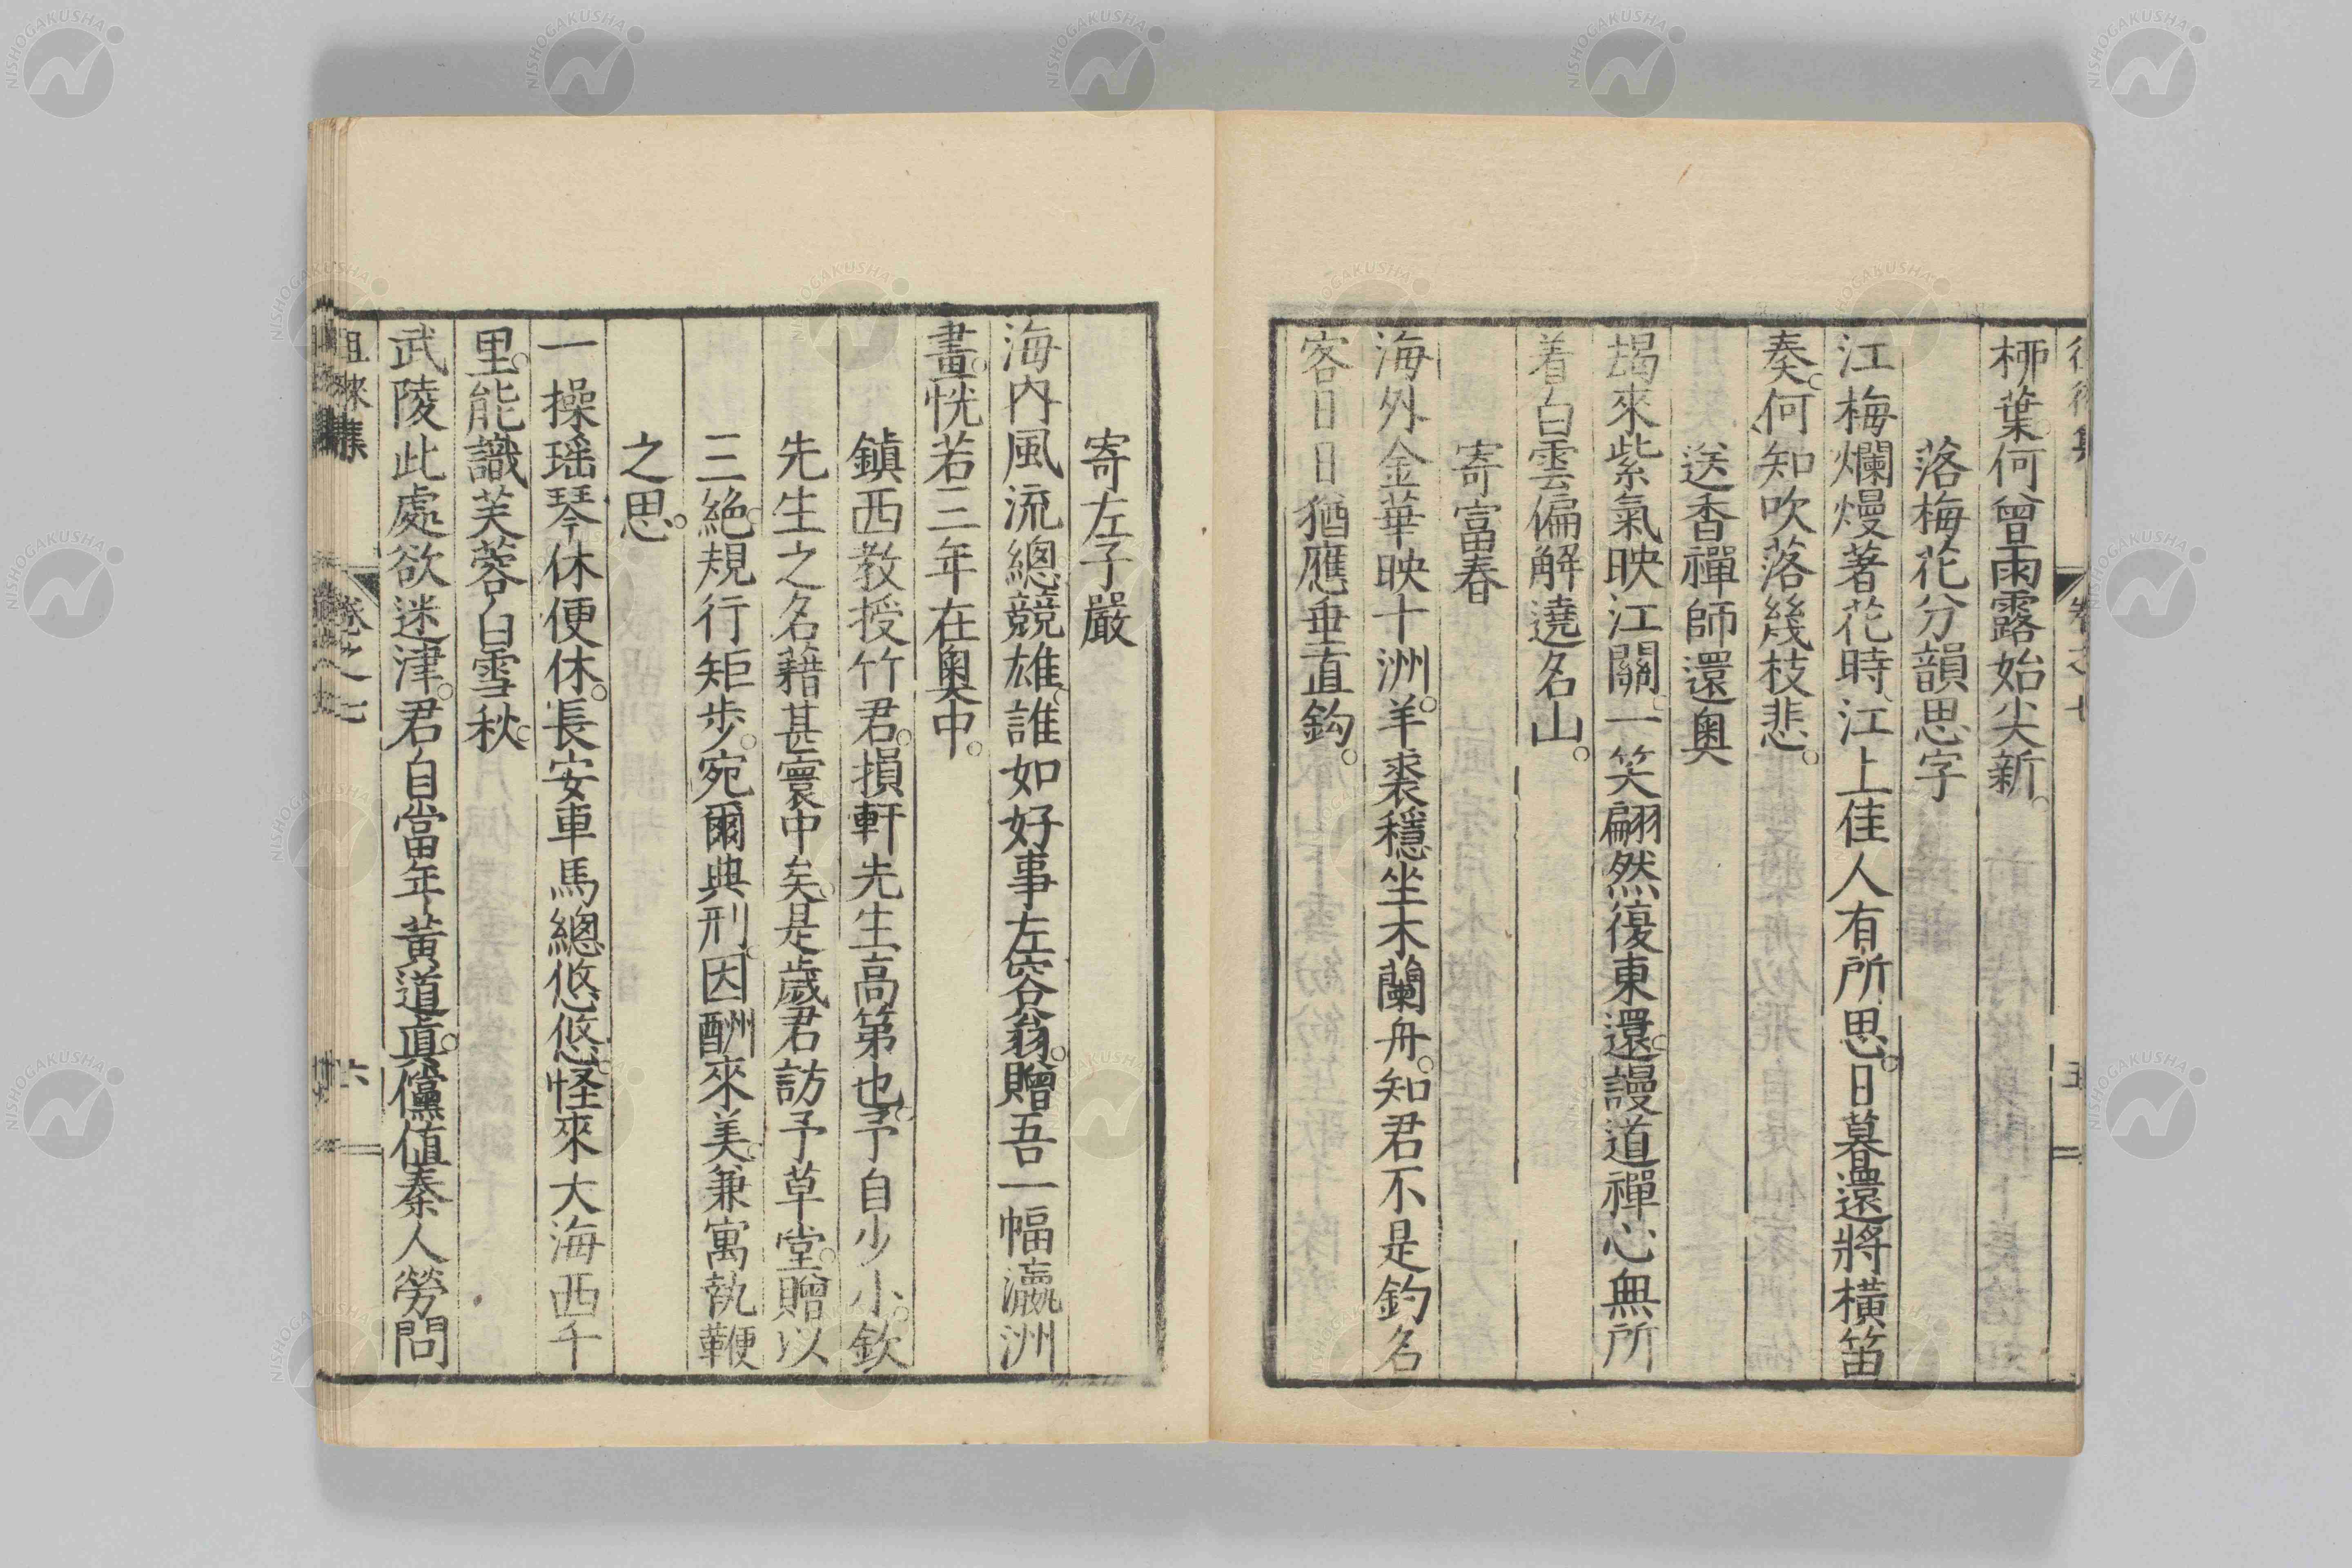 柳葉何曾雨露始尖新。
落梅花分韻思字
江梅爛熳著花時、江上佳人有所思。日暮還將橫笛
奏。何知吹落幾枝悲。
送香禪師還奧
朅來紫氣映江關。一笑翩然復東還。謾道禪心無所
着白雲偏解遶名山。
寄富春
海外金華映十洲。羊裘穩坐木蘭舟。知君不是釣名
客日日猶應垂直鈎。
寄左子嚴
海內風流總競雄、誰如好事左容翁。贈吾一幅瀛洲
畫。恍若三年在奧中。
鎮西教授竹君。損軒先生高第也。予自少小。欽
先生之名藉甚寰中矣。是歲君訪予草堂。贈以
三絕。規行矩步。宛爾典刑。因酬來美。兼寓執鞭
之思。
一操瑶琴休便休。長安車馬總悠悠。怪來大海西千
里。能識芙蓉白雪秋。
武陵此處欲迷津。君自當年黃道眞。儻値秦人勞問
徂徠集 卷之七 六